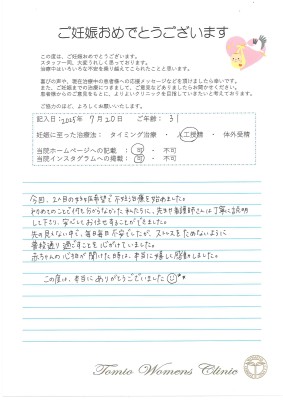 ご妊娠おめでとうございます
この度は、ご妊娠おめでとうございます。
スタッフ一同、大変うれしく思っております。
治療中はいろいろな不安を乗り越えてこられたことと思います。
喜びの声や、現在治療中の患者様への応援メッセージなどを頂けましたら幸いです。
また、ご妊娠までの治療につきまして、ご意見などありましたらお聞かせください。
患者様からのご意見をもとに、よりよいクリニックを目指していきたいと考えております。
ご協力のほど、よろしくお願いいたします。
記入日:2025年 7月20日 ご年齢: 31
妊娠に至った治療法: タイミング治療 ・ 人工授精 ・ 体外受精
当院ホームページへの記載 : 可 ・ 不可
当院インスタグラムへの掲載 : 可 ・ 不可
今回、2人目の妊娠希望で不妊治療を始めました。
初めてのことで何も分からなかった私たちに、先生や看護師さんは丁寧に説明
して下さり、安心してお任せすることができました。
先の見えない中で、毎日毎日不安でしたが、ストレスをためないように
普段通り過ごすことを心がけていました。
赤ちゃんの心拍が聞けた時は、本当に嬉しく感動しました。
この度は、本当にありがとうございました
Tomio Womens Clinic